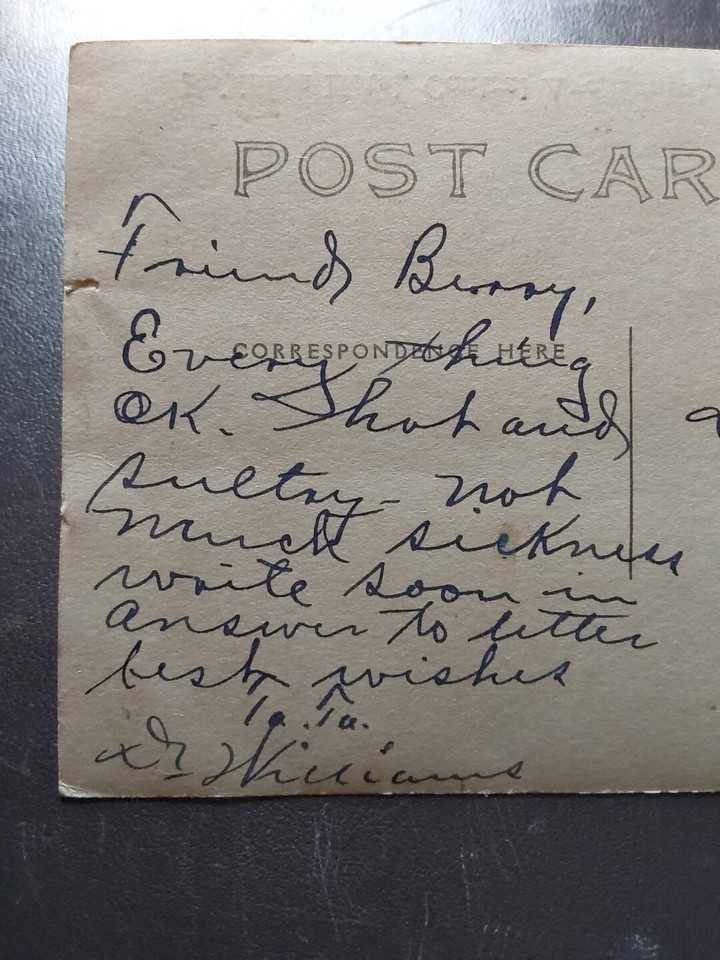 POST CAR
Friend Berry,
CORRESPONDENCE HERE
Every thing
OK. Shot and
sultry - not
much sickness
write soon in
answer to letter
best wishes
Ta. Ta.
Dr Williams